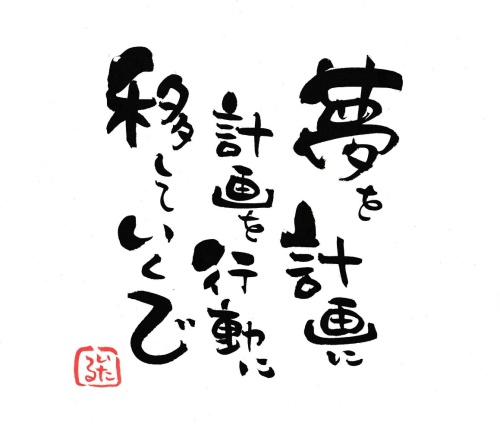 夢を計画に
計画を行動に
移していくび